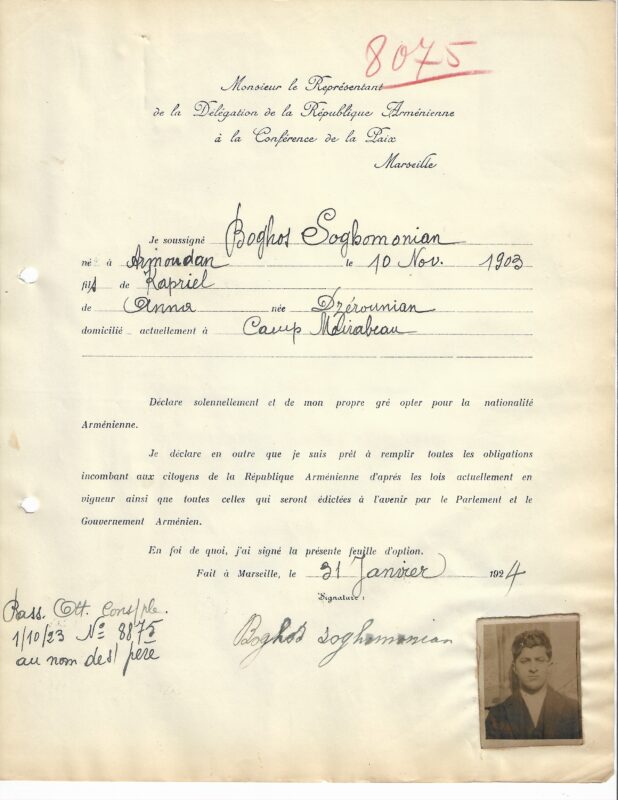 8075
Monsieur le Représentant
de la Délégation de la République Arménienne
à la Conférence de la Paix
Marseille
Je soussigné Boghos Soghomonian
né à Armoudan le 10 Nov. 1903
fils de Kapriel
de Anna née Dzérounian
domicilié actuellement à Camp Mirabeau
Déclare solennellement et de mon propre gré opter pour la nationalité
Arménienne.
Je déclare en outre que je suis prêt à remplir toutes les obligations
incombant aux citoyens de la République Arménienne d'après les lois actuellement en
vigueur ainsi que toutes celles qui seront édictées à l'avenir par le Parlement et le
Gouvernement Arménien.
En foi de quoi, j'ai signé la présente feuille d'option.
Fait à Marseille, le 31 Janvier 1924
Signature :
Boghos soghomonian
Pass. Ott. Consple.
1/10/23 Nº 8875
au nom des/ père